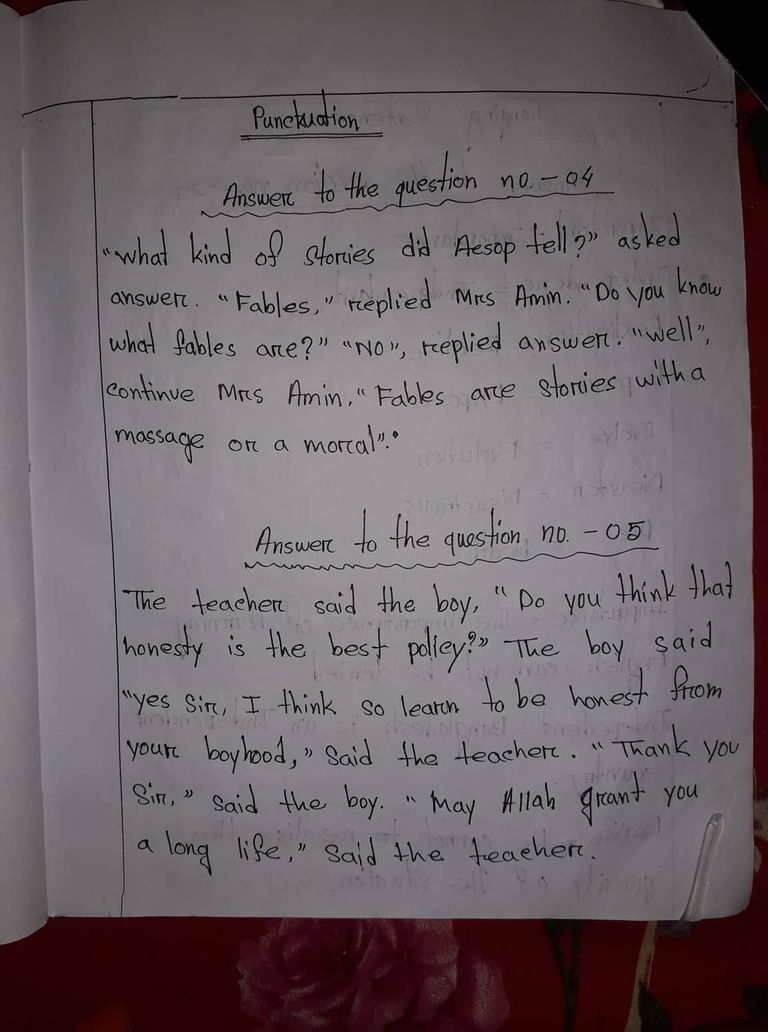 Punctuation
Answer to the question no. - 04
"what kind of stories did Aesop tell?" asked
answer. "Fables," replied Mrs Amin. "Do you know
what fables are?" "NO", replied answer. "well",
continue Mrs Amin. "Fables are stories with a
massage or a moral".
Answer to the question no. - 05
The teacher said the boy, "Do you think that
honesty is the best policy?" The boy said
"yes Sir, I think so learn to be honest from
your boyhood," said the teacher. "Thank you
Sir," said the boy. "May Allah grant you
a long life," said the teacher.